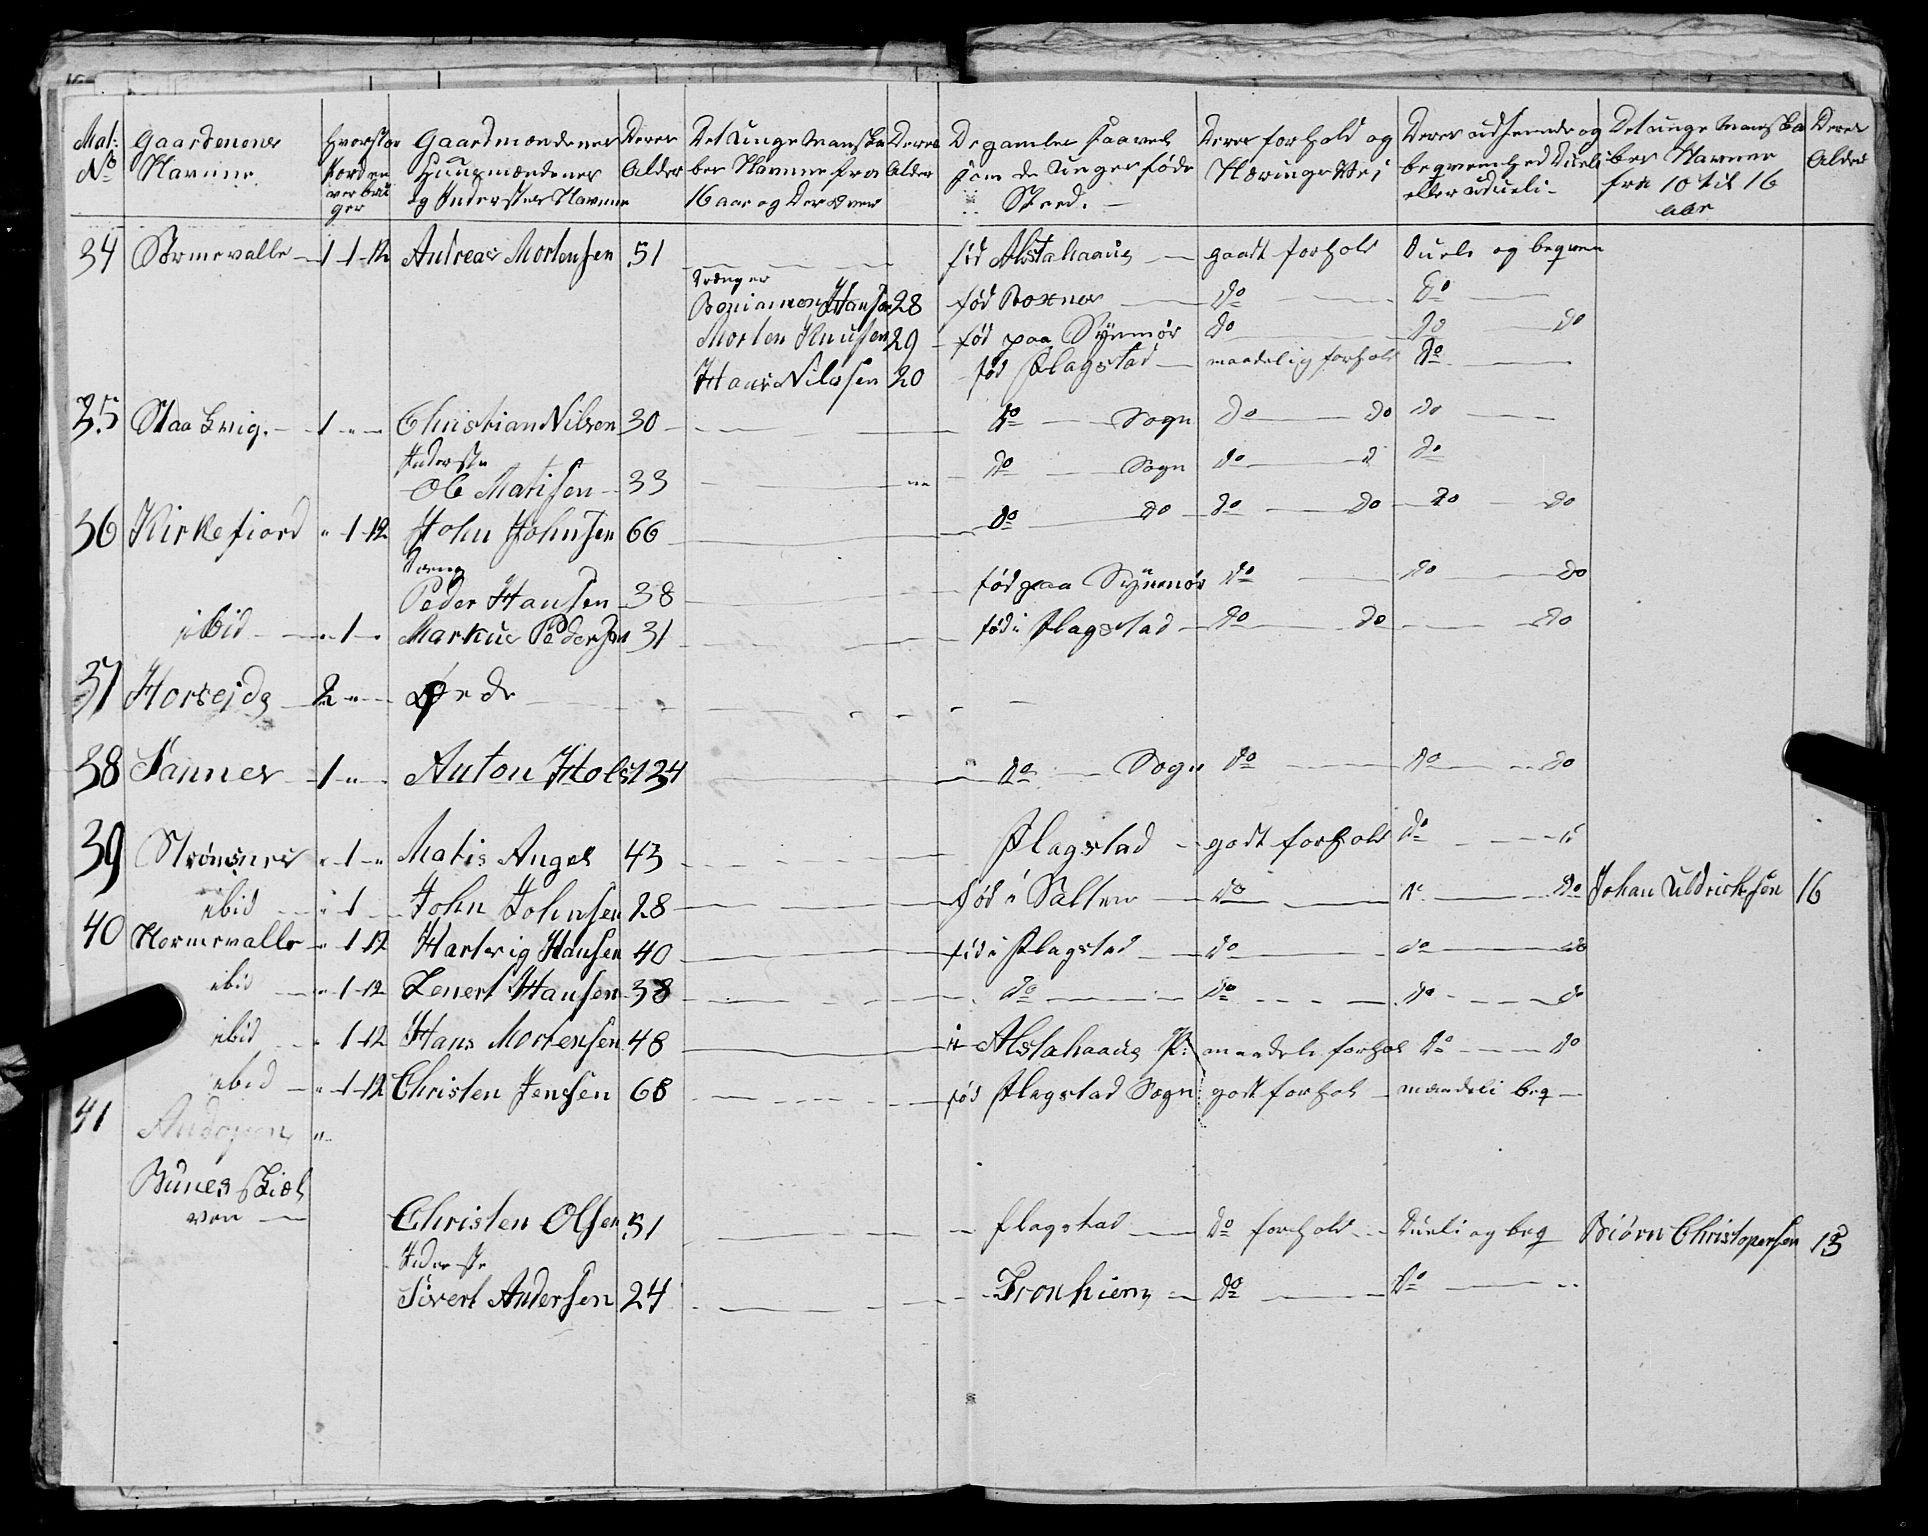 Mat: No | Gaardenenes Navnne | Hvorstor Jord en ver bru ger | Gaardmændenes Huusmændenes og Inderstes Navnne | Deres Alder | Det Unge Mandska ber Navnne fra 16 aar og Der over | Deres Alder | De gamles saavel som de Unges føde Sted. | Deres forhold og Nærings Vei | Deres udseende og beqvemhed Dueli eller udueli | Det unge Mandska ber Navnne fra 10 til 16 aar | Deres Alder
34 Sørmevalle 1 1 12 Andreas Mortensen 51 fød Alstahaaug gaadt forhold Dueli og beqvem
Dränger
Beniamen Hansen 28 fød Boxnes Do Do
Morten Knusen 29 fød paa Synmør Do Do Do
Hans Nilssen 20 fød Flagstad maadelig forhold Do
35 Staa Lvig. 1 Christian Nilsen 30 Do Sogn Do Do Do
Inderste
Ole Matisen 33 Do Sogn Do D Do
36 Kirkefiord 1 12 John Johnsen 66 Do Do Do Do Do Do
Dreng
Peder Hansen 38 fød paa Synmør Do Do Do
ibid 1 Markus Pedersen 31 fød i Flagstad Do Do Do
37 Horseide 2 Øde
38 Fannes 1 Anton Holst 34 Do Sogn Do Do Do
39 Strømsnes 1 Matis Angel 43 Flagstad godt forhold Do
ibid 1 John Johnsen 28 fød i Salten Do Do Do Johan Uldrichsen 16
40 Normevalle 1 12 Hartvig Hansen 40 fød i Flagstad Do Do Do
ibid 1 12 Lenert Hansen 38 Do Do Do Do
ibid 1 12 Hans Mortensen 48 Alstahaaug P: maadeli forhol Do Do
ibid 1 12 Christen Jenssen 68 fød Flagstad Sogn godt forhol maadeli beq
41 Andopen
Bunes
ven Christen Olsen 51 flagstad Do forhold Dueli og beq Biørn Christopersen 13
Inderste
Sivert Andersen 24 Tronhiem Do Do